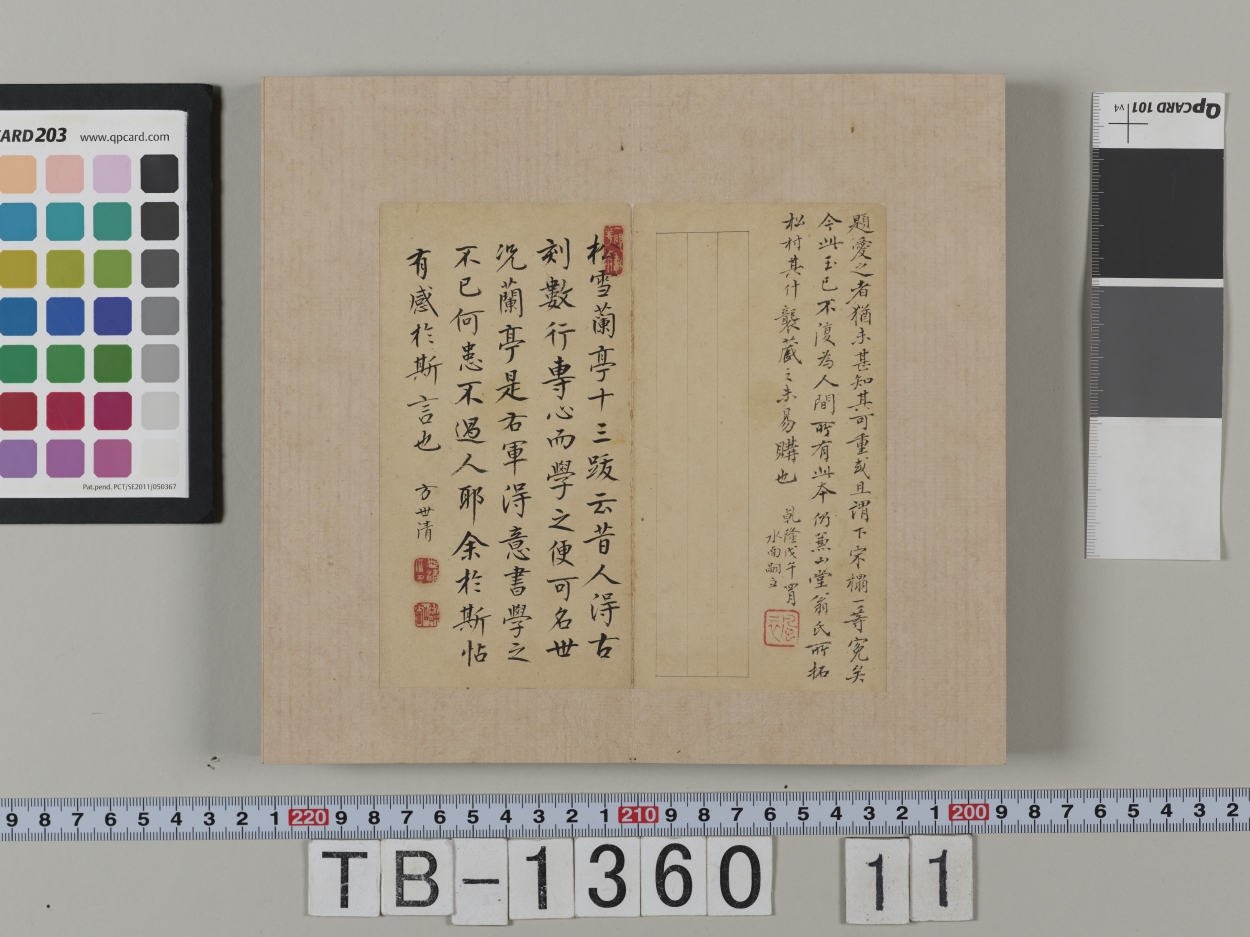 題愛之者猶未甚知其可重或且謂下宋榻一等寃矣
今此玉已不復為人間所有此本仍蕉山堂翁氏所拓
松村其什襲藏之未易購也
乾隆戊午
水南
松雪蘭亭十三跋云昔人得古
刻數行專心而學之便可名世
况蘭亭是右軍得意書學之
不已何患不過人耶余於斯帖
有感於斯言也
方世清
CARD203 www.qpcard.com
Pat.pend. PCT/SE2011/050367
QPCARD 101 v4
9 8 7 6 5 4 3 2 1 220 9 8 7 6 5 4 3 2 1 210 9 8 7 6 5 4 3 2 1 200 9 8 7 6 5 4 3 2
TB-1360 11